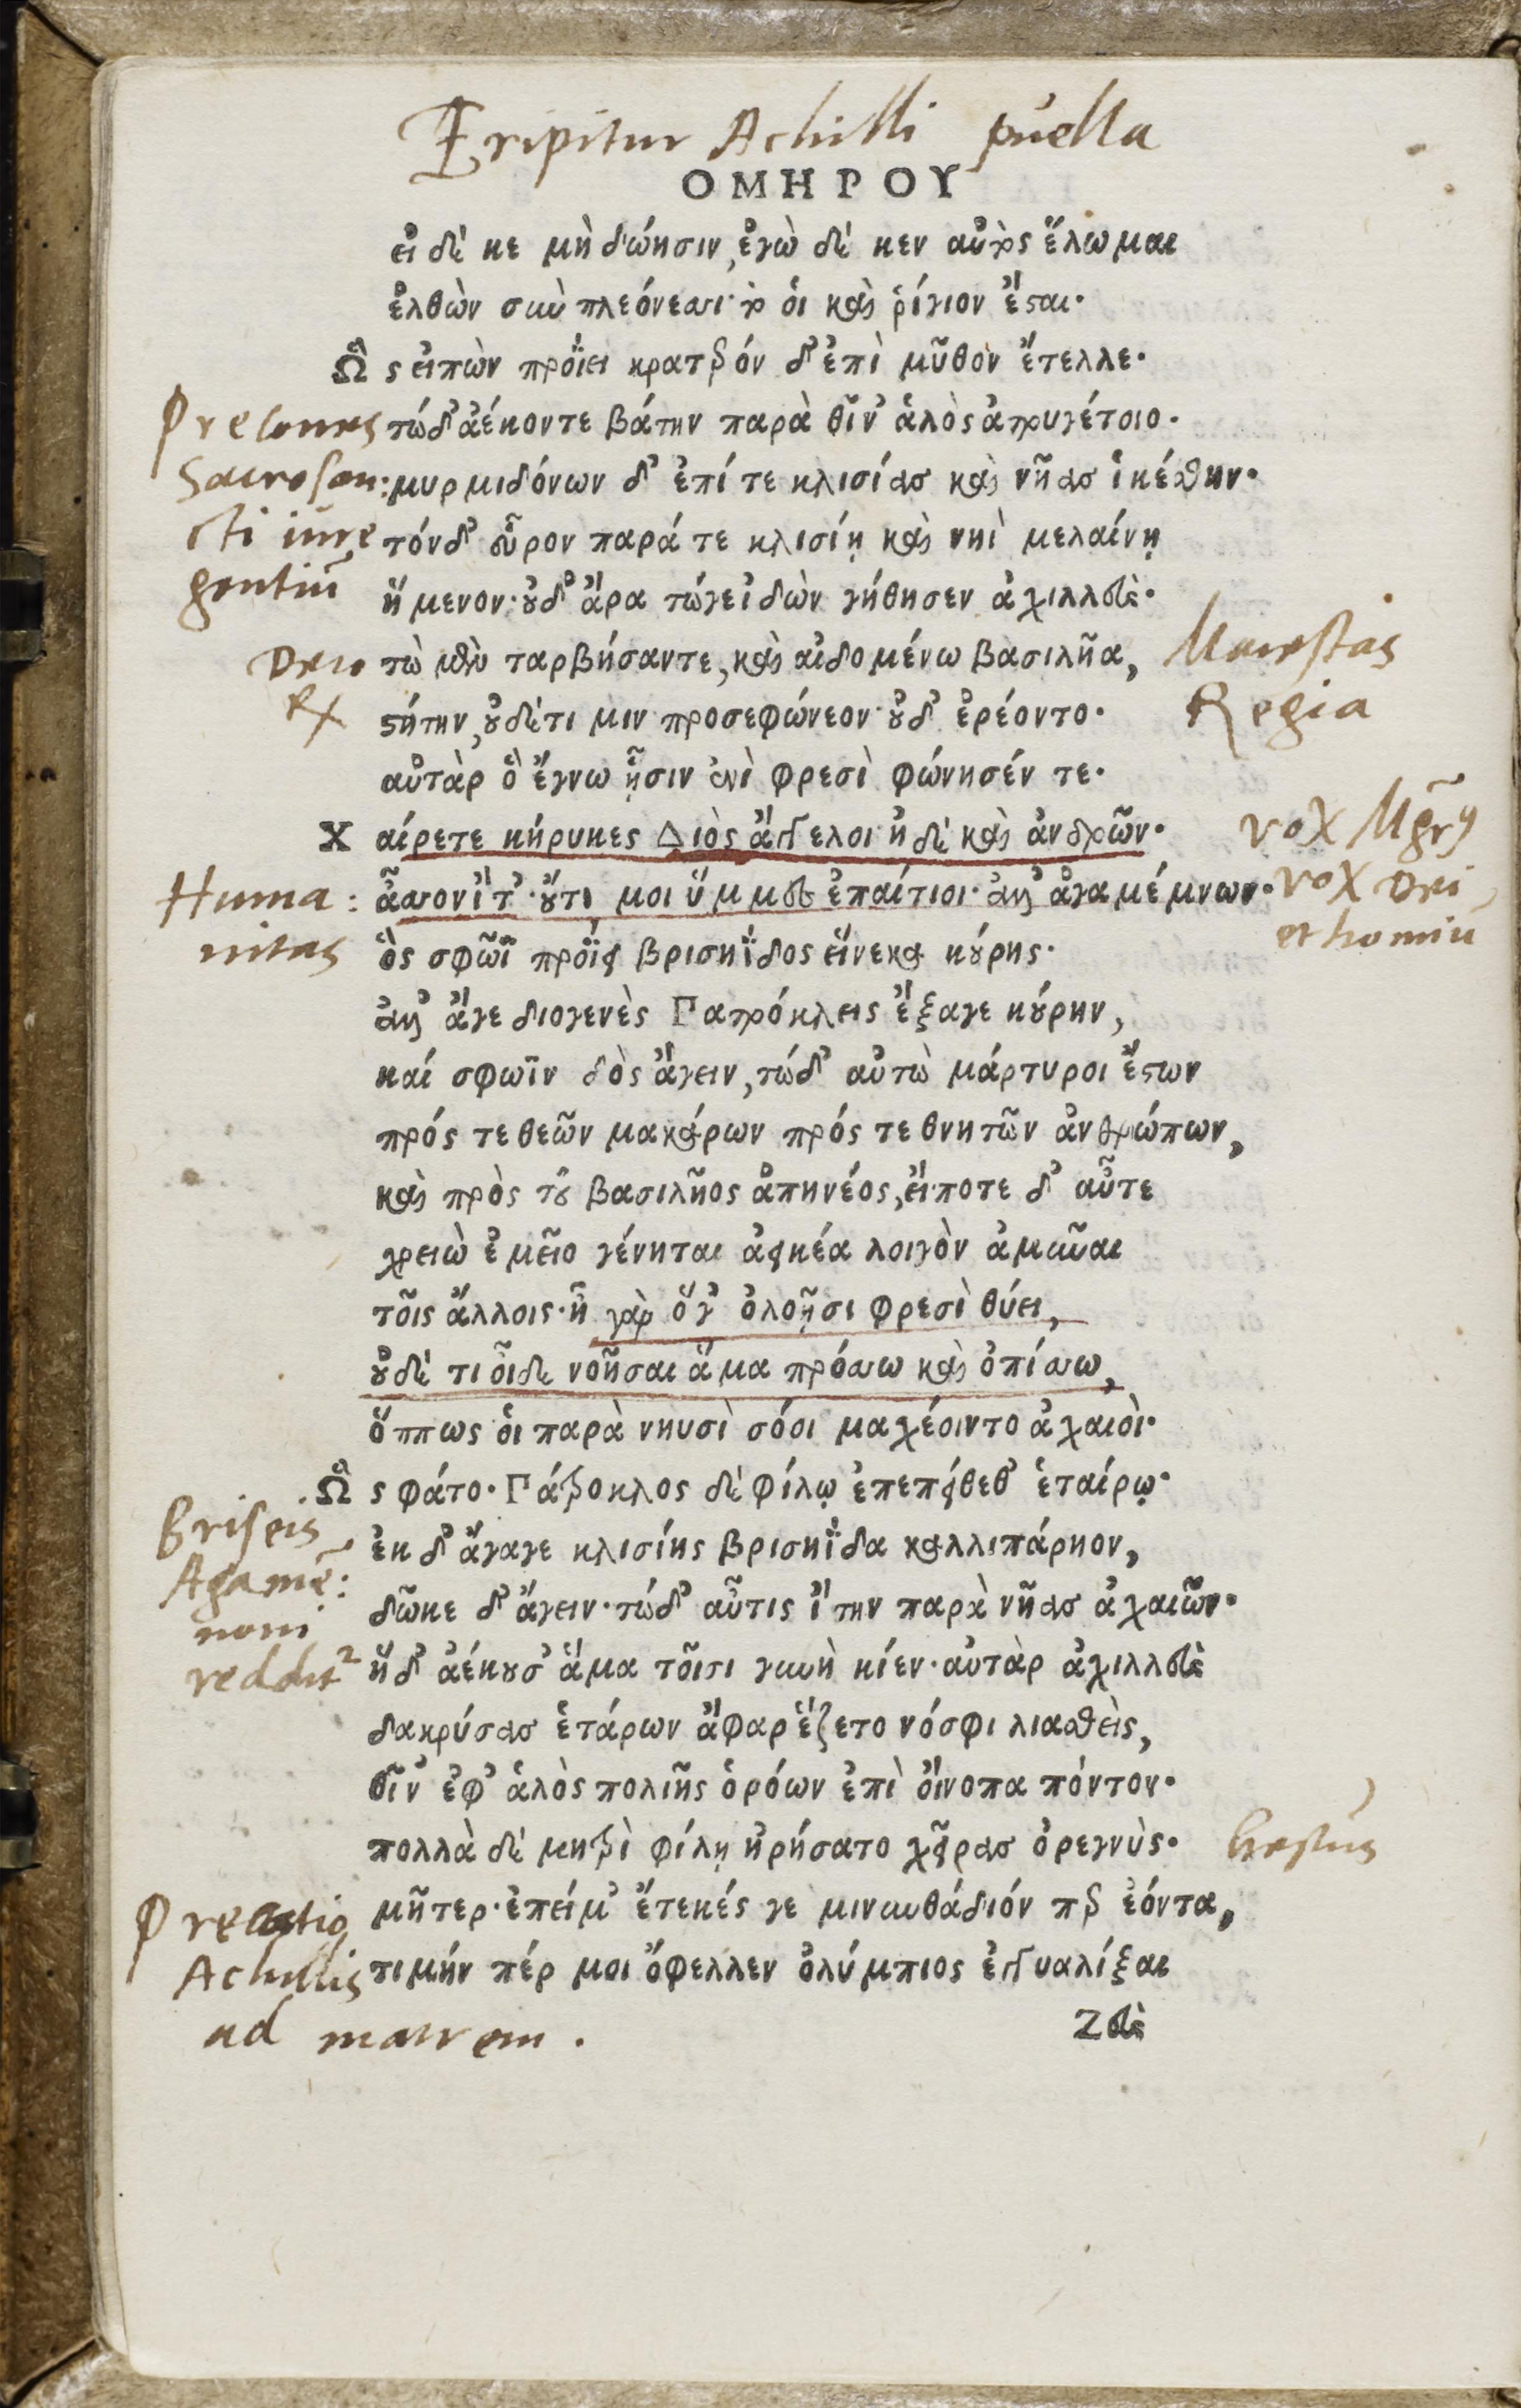 Eripitur Achilli puella
ΟΜΗΡΟΥ
εἰ δέ κε μὴ δώησιν, ἐγὼ δέ κεν αὐτὸς ἕλωμαι
ἐλθὼν σὺν πλεόνεσσι· τό οἱ καὶ ῥίγιον ἔσται·
Ὣς εἰπὼν προΐει κρατερόν δ' ἐπὶ μῦθον ἔτελλε·
Precones
τώδ' ἀέκοντε βάτην παρὰ θῖν' ἁλὸς ἀτρυγέτοιο·
Sacrosan:
μυρμιδόνων δ' ἐπί τε κλισίας καὶ νῆας ἱκέσθην·
cti iure
τόνδ' εὗρον παρά τε κλισίῃ καὶ νηὶ μελαίνῃ
gentiū
ἥμενον· οὐδ' ἄρα τώγε ἰδὼν γήθησεν ἀχιλλεύς·
τὼ μὲν ταρβήσαντε, καὶ αἰδομένω βασιλῆα,
Maiestas
στήτην, οὐδέτι μιν προσεφώνεον· οὐδ' ἐρέοντο·
Regia
αὐτὰρ ὃ ἔγνω ᾗσιν ἐνὶ φρεσὶ φώνησέν τε·
Χαίρετε κήρυκες Διὸς ἄγγελοι ἠδέ καὶ ἀνδρῶν·
vox
Huma:
ἆσσον ἴτ'· οὔτι μοι ὔμμες ἐπαίτιοι· ἀλλ' ἀγαμέμνων·
vox Dei
nitas
ὃς σφῶϊ προΐει βρισηΐδος εἵνεκα κούρης·
et homiū
ἀλλ' ἄγε διογενὲς Πατρόκλεις ἔξαγε κούρην,
καί σφωῒν δὸς ἄγειν, τώδ' αὐτὼ μάρτυροι ἔστων
πρός τε θεῶν μακάρων πρός τε θνητῶν ἀνθρώπων,
καὶ πρὸς τοῦ βασιλῆος ἀπηνέος, εἴποτε δ' αὖτε
χρειὼ ἐμεῖο γένηται ἀεικέα λοιγὸν ἀμῦναι
τοῖς ἄλλοις· ἦ γὰρ ὅγ' ὀλοῇσι φρεσὶ θύει,
οὐδέ τι οἶδε νοῆσαι ἅμα πρόσσω καὶ ὀπίσσω,
ὅππως οἱ παρὰ νηυσὶ σόοι μαχέοιντο ἀχαιοὶ·
Ὣς φάτο· Πάτροκλος δέ φίλῳ ἐπεπείθεθ' ἑταίρῳ·
Briseis
ἐκ δ' ἄγαγε κλισίης βρισηΐδα καλλιπάρηον,
Agamē:
δῶκε δ' ἄγειν· τώδ' αὖτις ἴτην παρὰ νῆας ἀχαιῶν·
noni
ἥδ' ἀέκουσ' ἅμα τοῖσι γυνὴ κίεν· αὐτὰρ ἀχιλλεὺς
δακρύσας ἑτάρων ἄφαρ ἕζετο νόσφι λιασθεὶς,
θῖν' ἐφ' ἁλὸς πολιῆς ὁρόων ἐπὶ οἴνοπα πόντον·
πολλὰ δέ μητρὶ φίλῃ ἠρήσατο χεῖρας ὀρεγνὺς·
Gestus
μῆτερ· ἐπεί μ' ἔτεκές γε μινυνθάδιόν περ ἐόντα,
Precatio
τιμήν πέρ μοι ὄφελλεν ὀλύμπιος ἐγγυαλίξαι
Achillis
ad matrem.
Ζεὺς